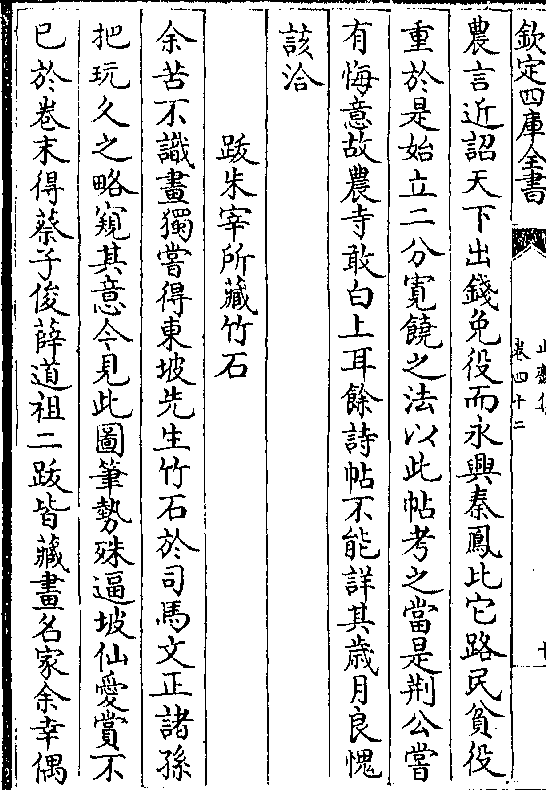 欽定四庫全書
卷四十二
農言近詔天下出錢免役而永興秦鳳比它路民貧役
重於是始立二分寛饒之法以此帖考之當是荆公嘗
有悔意故農寺敢白上耳餘詩帖不能詳其歳月良愧
該洽
跋朱宰所藏竹石
余苦不識畫獨嘗得東坡先生竹石於司馬文正諸孫
把玩久之略窺其意今見此圖筆勢殊逼坡仙愛賞不
已於卷末得蔡子俊薛道祖二跋皆藏畫名家余幸偶